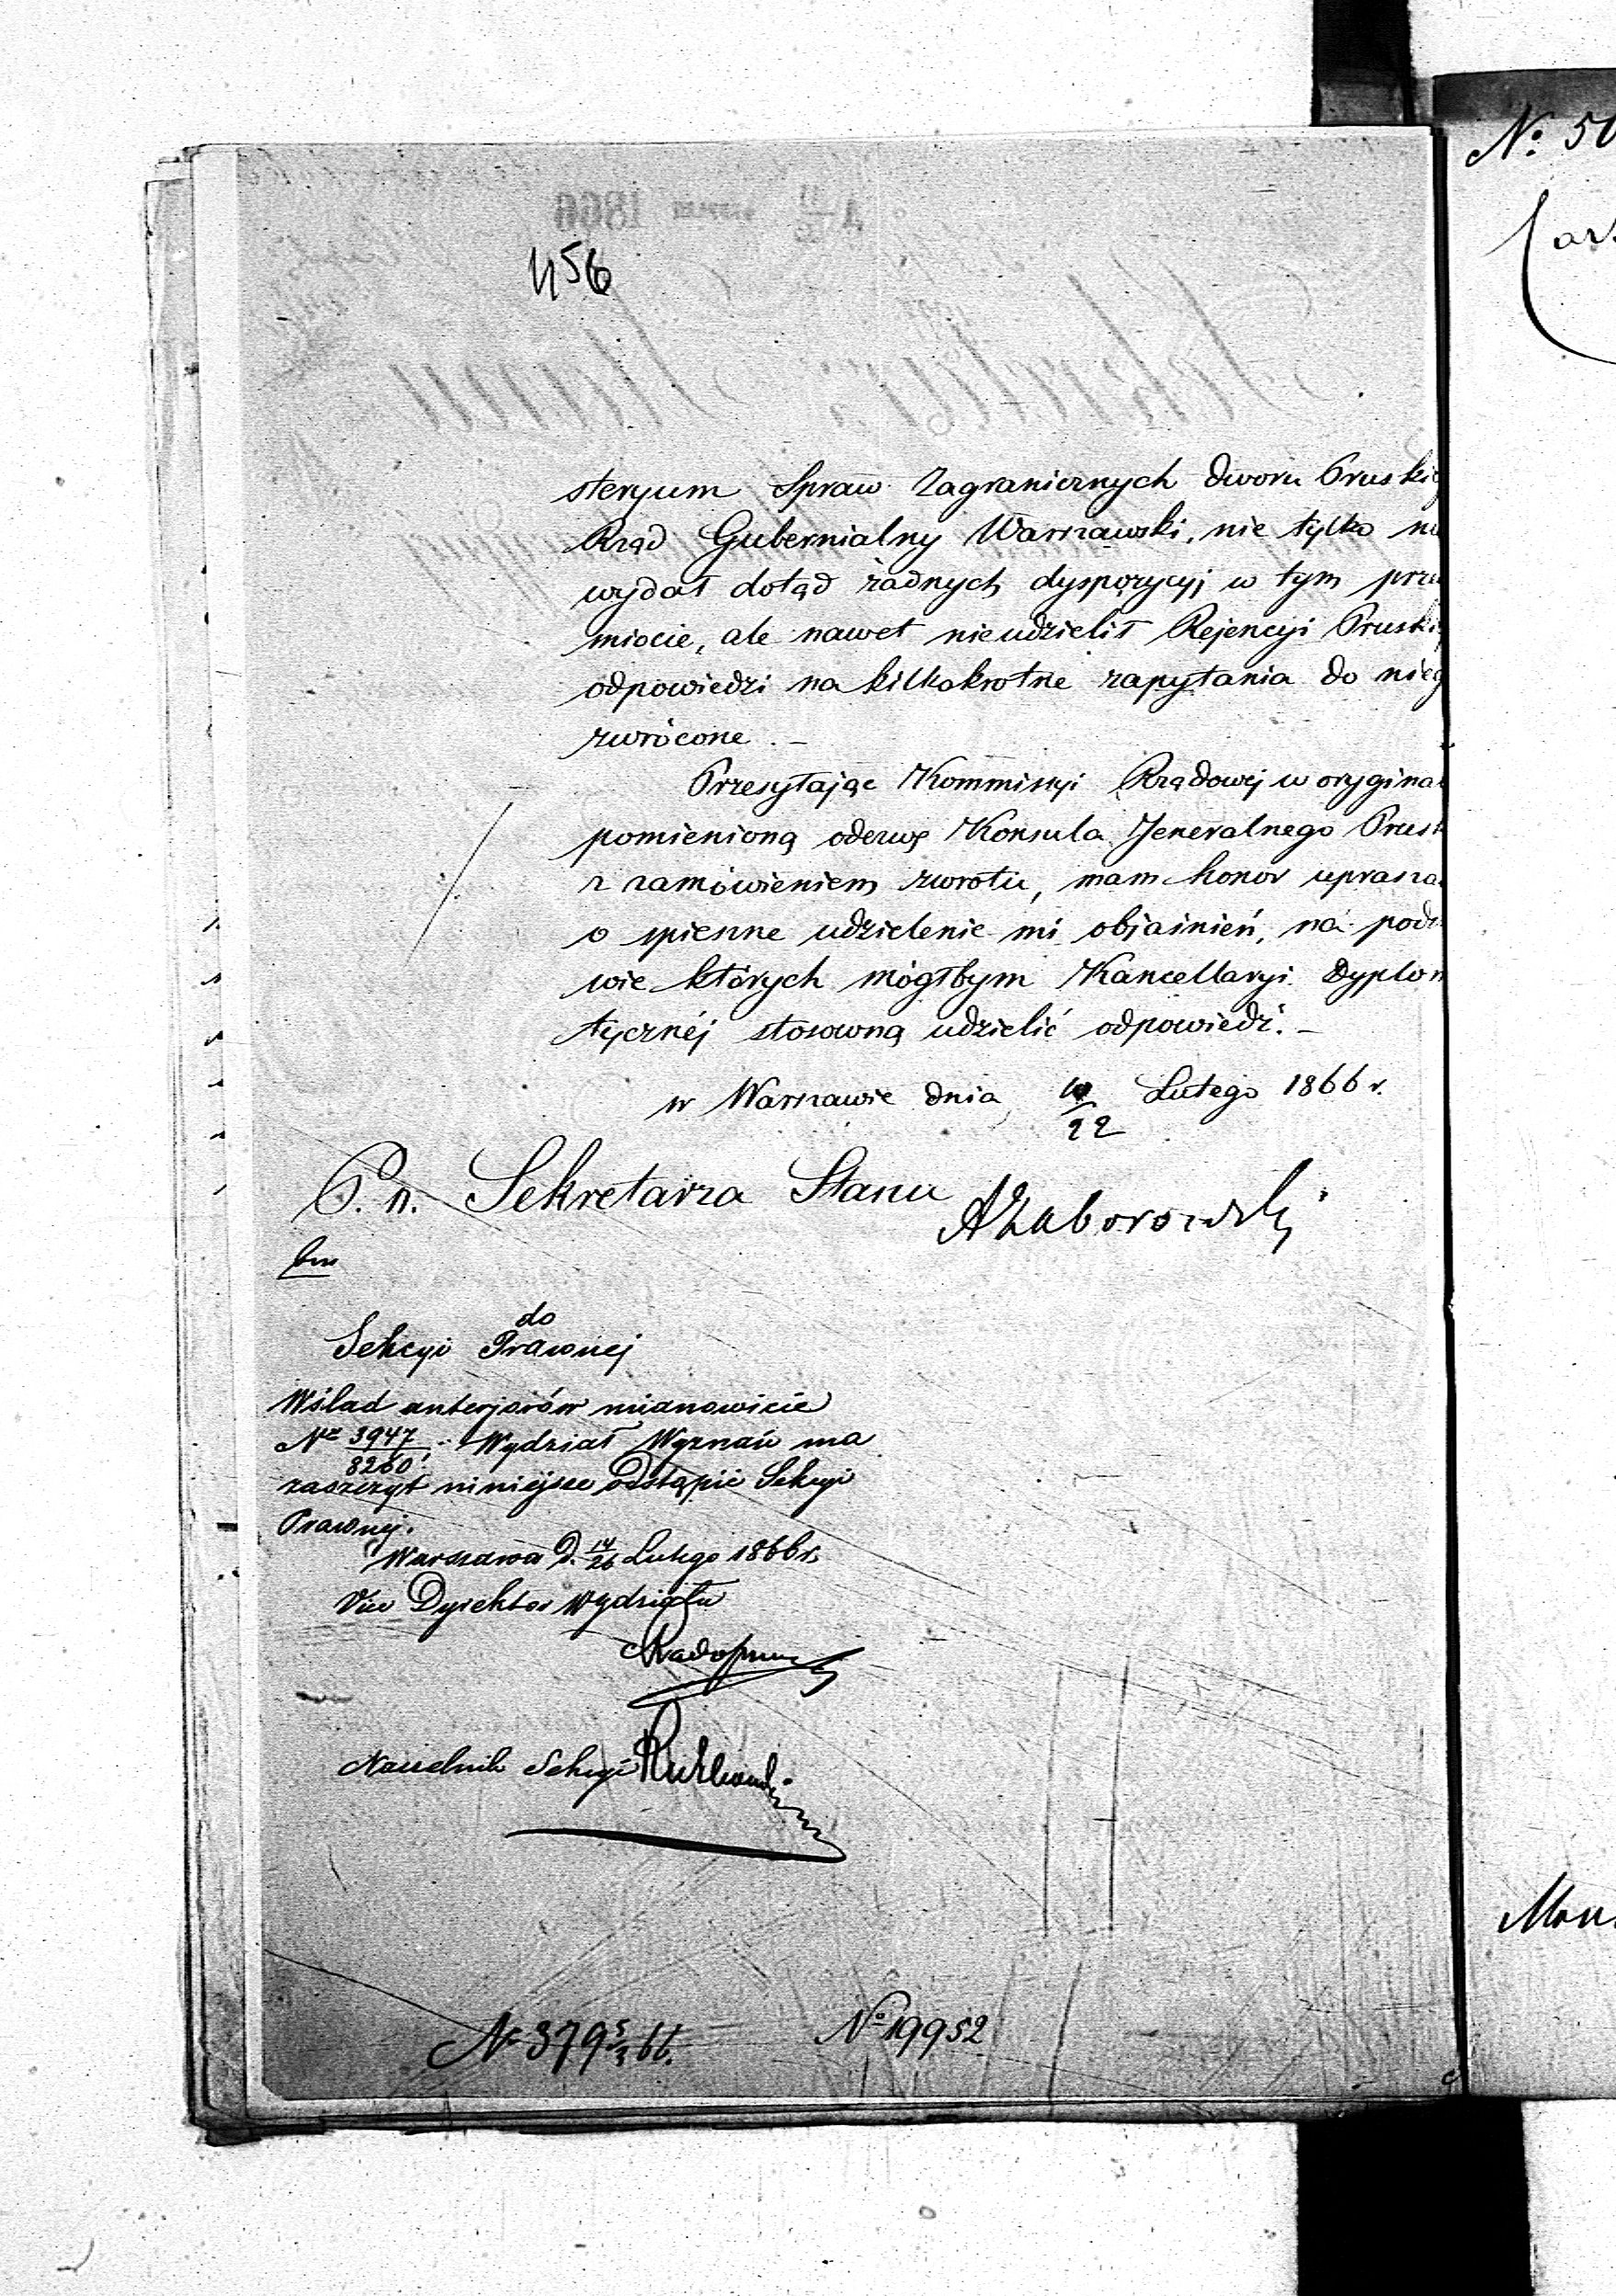 456
steryum Spraw Zagranicznych dworu Pruskieg
Rząd Gubernialny Warszawski, nie tylko nie
wydał dotąd żadnych dyspozycyj w tym prze
miocie, ale nawet nieudzielił Rejencyi Pruskiej
odpowiedzi na kilkakrotne zapytania do nieg
zwrócone. –
Przesyłając Kommissyi Rządowej w orygina
pomienioną odezwę Konsula Jeneralnego Prusk
z zamówieniem zwrotu, mam honor uprasza
o spieszne udzielenie mi objaśnień, na pods
wie których mógłbym Kancellaryi Dyplom
tycznéj stosowną udzielić odpowiedź. –
w Warszawie dnia 10/22 Lutego 1866 r.
P. o. Sekretarza Stanu
AZaborowski
do
Sekcyi Prawnej
Wślad anterjorów mianowicie
Nr 3947/8260 Wydział Wyznań ma
zaszczyt niniejsze odstąpić Sekcyi
Prawnej.
Warszawa D. 14/26 Lutego 1866 r.
Vice Dyrektor Wydziału
Naczelnik Sekcyi
No 19952
No 50